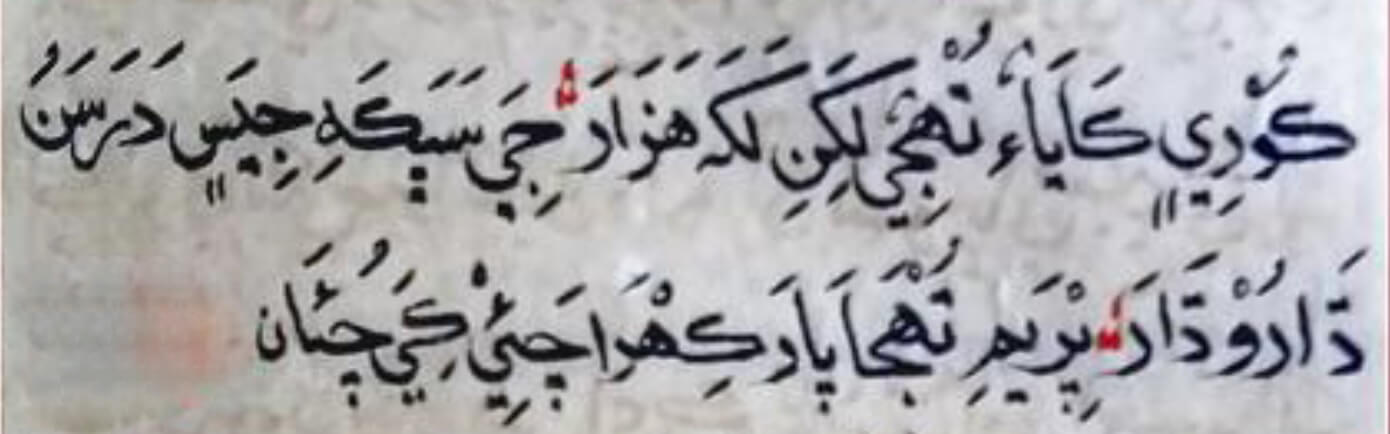 ڪَوْڙِيٍ ڪَايَاءِ تُهْجِي لَکَنِ لَکَہ هَزَارَ جِيَ سَڀَڪَہِ جِيَسٍ دَرَسَنُ
ڌَارُوْ ڌَارَ پِرْيَمِ تُهْجَا پَارَ ڪِهْڙَا چَئِيْ ڪِيَ چُئَان